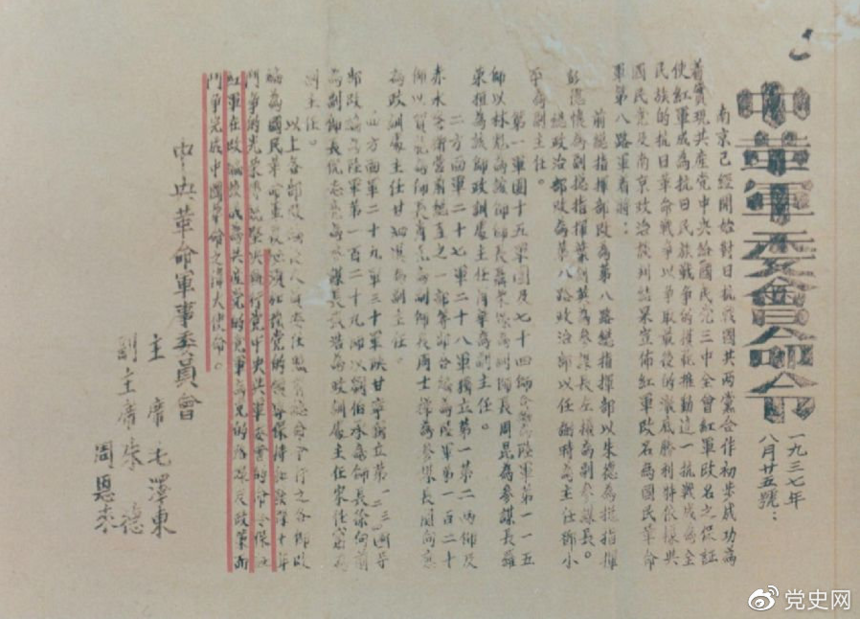 中革軍委會命令
一九三七年
八月廿五號：
南京已經開始對日抗戰國共兩黨合作初步成功為
着實現共產党中央給國民党三中全會紅軍改名之保証
使紅軍成為抗日民族戰爭的模範推動這一抗戰成為全
民族的抗日革命戰爭以爭取最後的澈底勝利特依據與
國民党及南京政治談判結果宣佈紅軍改名為國民革命
軍第八路軍着
前總指揮部改為第八路總指揮部以朱德為總指揮
彭德懷為副總指揮葉劍英為參謀長左權為副參謀長。
總政治部改為第八路政治部以任弼時為主任鄧小
平為副主任。
第一軍團十五軍團及七十四師合編為陸軍第一一五
師以林彪為該師師長聶榮臻為副師長周昆為參謀長羅
榮桓為該師政訓處主任肖華為副主任。
二方面軍二十七軍二十八軍獨立第一第二兩師及
赤水警衛營前總直之一部等部合編為陸軍第一百二十
師以賀龍為師長蕭克為副師長周士第為參謀長關向應
為政訓處主任甘泗淇為副主任。
四方面軍二十九軍三十軍陝甘寧獨立第一二三四等
部改編為陸軍第一百二十九師以劉伯承為師長徐向前
為副師長倪志亮為參謀長張浩為政訓處主任宋任窮為
副主任。
以上各部改編後人員委任照前總命令行之各師改
編為國民革命軍後必須加強党的領導保持和發揚十年
鬥爭的光榮傳統堅決執行党中央與軍委會的命令保証
紅軍在改編後成為共產党的党軍為党的路線及政策而
鬥爭完成中國革命之偉大使命。
中央革命軍事委員會
主席毛澤東
副主席朱德
周恩來
党史网